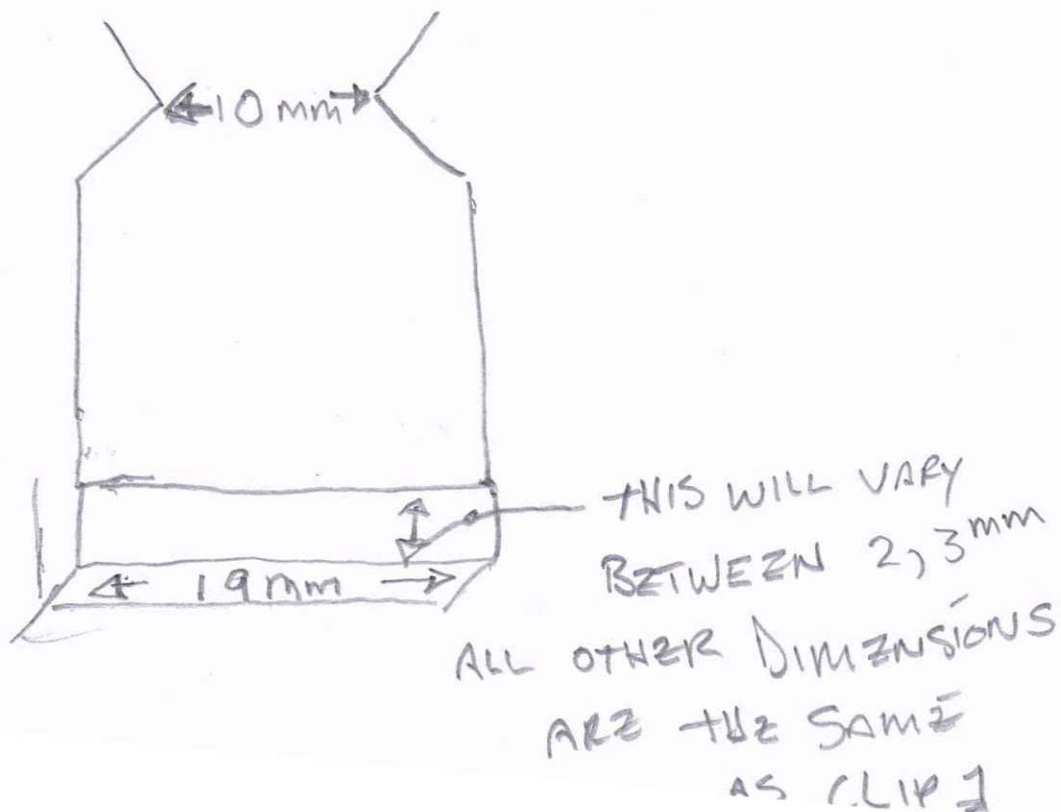 10 mm
THIS WILL VARY
BETWEEN 2,3mm
19mm
ALL OTHER DIMENSIONS
ARE THE SAME
AS CLIP 1